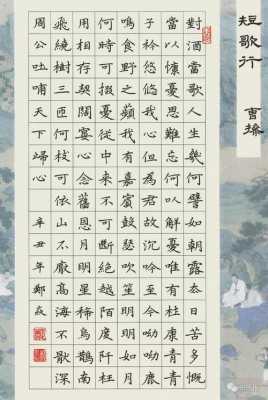 短歌行 曹操
對酒當歌人生幾何譬如朝露去日苦多慨
當以慷憂思難忘何以解憂唯有杜康青青
子衿悠悠我心但為君故沉吟至今呦呦鹿
鳴食野之蘋我有嘉賓鼓瑟吹笙明明如月
何時可掇憂從中來不可斷絕越陌度阡枉
用相存契闊談宴心念舊恩月明星稀烏鵲南
飛繞樹三匝何枝可依山不厭高海不厭深
周公吐哺天下歸心 辛丑年鄭焱